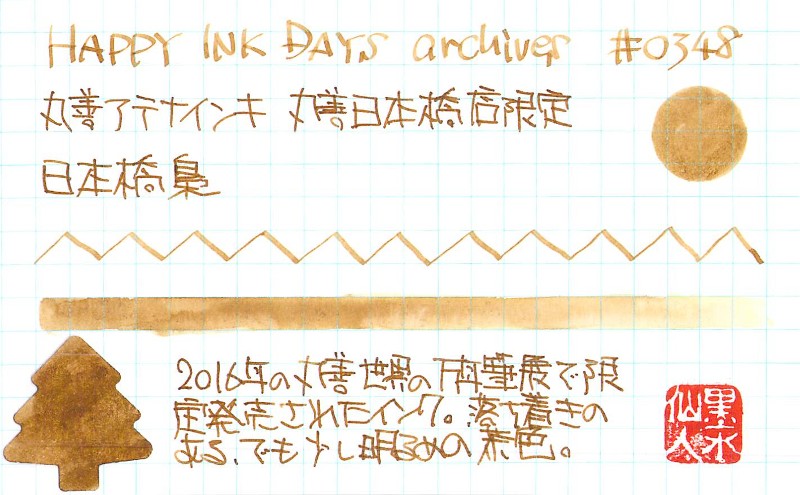 HAPPY INK DAYS archives #0348
丸善アテナインキ 丸善日本橋店限定
日本橋梟
2016年の丸善世界の万年筆展で限
定発売されたインク。落ち着きの
ある、でも少し明るめの茶色。
墨水
仙人